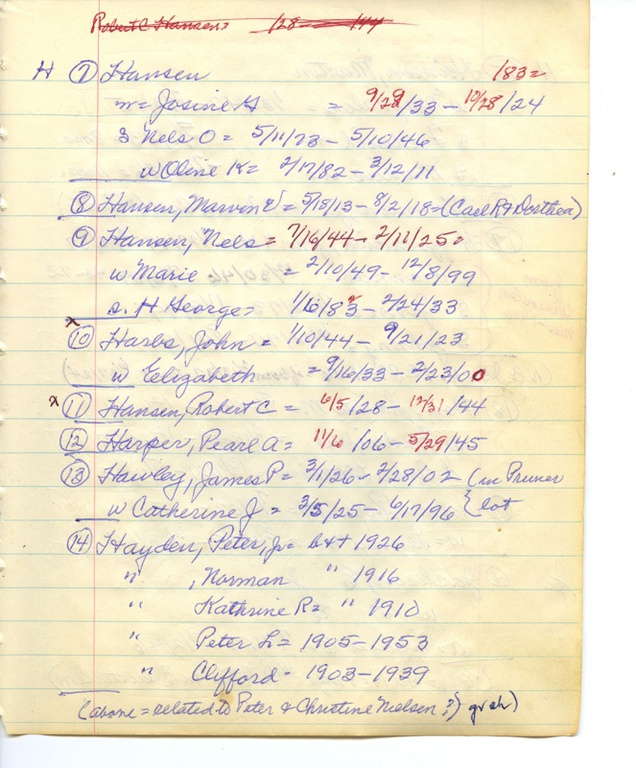 Robert C Hansen = /28 — /44
H ⑦ Hansen 183=
m = Josine H = 9/28/33 - 10/28/24
S Nels O = 5/11/73 - 5/10/46
w Oline K = 2/17/82 - 3/12/11
⑧ Hansen, Marvon V = 5/18/13 - 8/2/18 = (Carl R + Dorthea)
⑨ Hansen, Nels = 7/16/44 - 2/11/25 =
w Marie = 2/10/49 - 12/8/99
s. H George = 1/6/83 - 2/24/33
x
⑩ Harbs, John = 1/10/44 - 9/21/23
w Elizabeth = 9/16/33 - 2/23/00
x ⑪ Hansen, Robert C = 6/5/28 - 12/31/44
⑫ Harper, Pearl A = 11/6/06 - 5/29/45
⑬ Hawley, James P = 3/1/26 - 2/28/02 (in Pruner
w Catherine J = 3/5/25 - 6/17/96 { lot
⑭ Hayden, Peter, Jr = b+d 1926
" , Norman " 1916
" Kathrine R = " 1910
" Peter L = 1905-1953
" Clifford - 1903-1939
(above = related to Peter & Christine Nielsen ?)